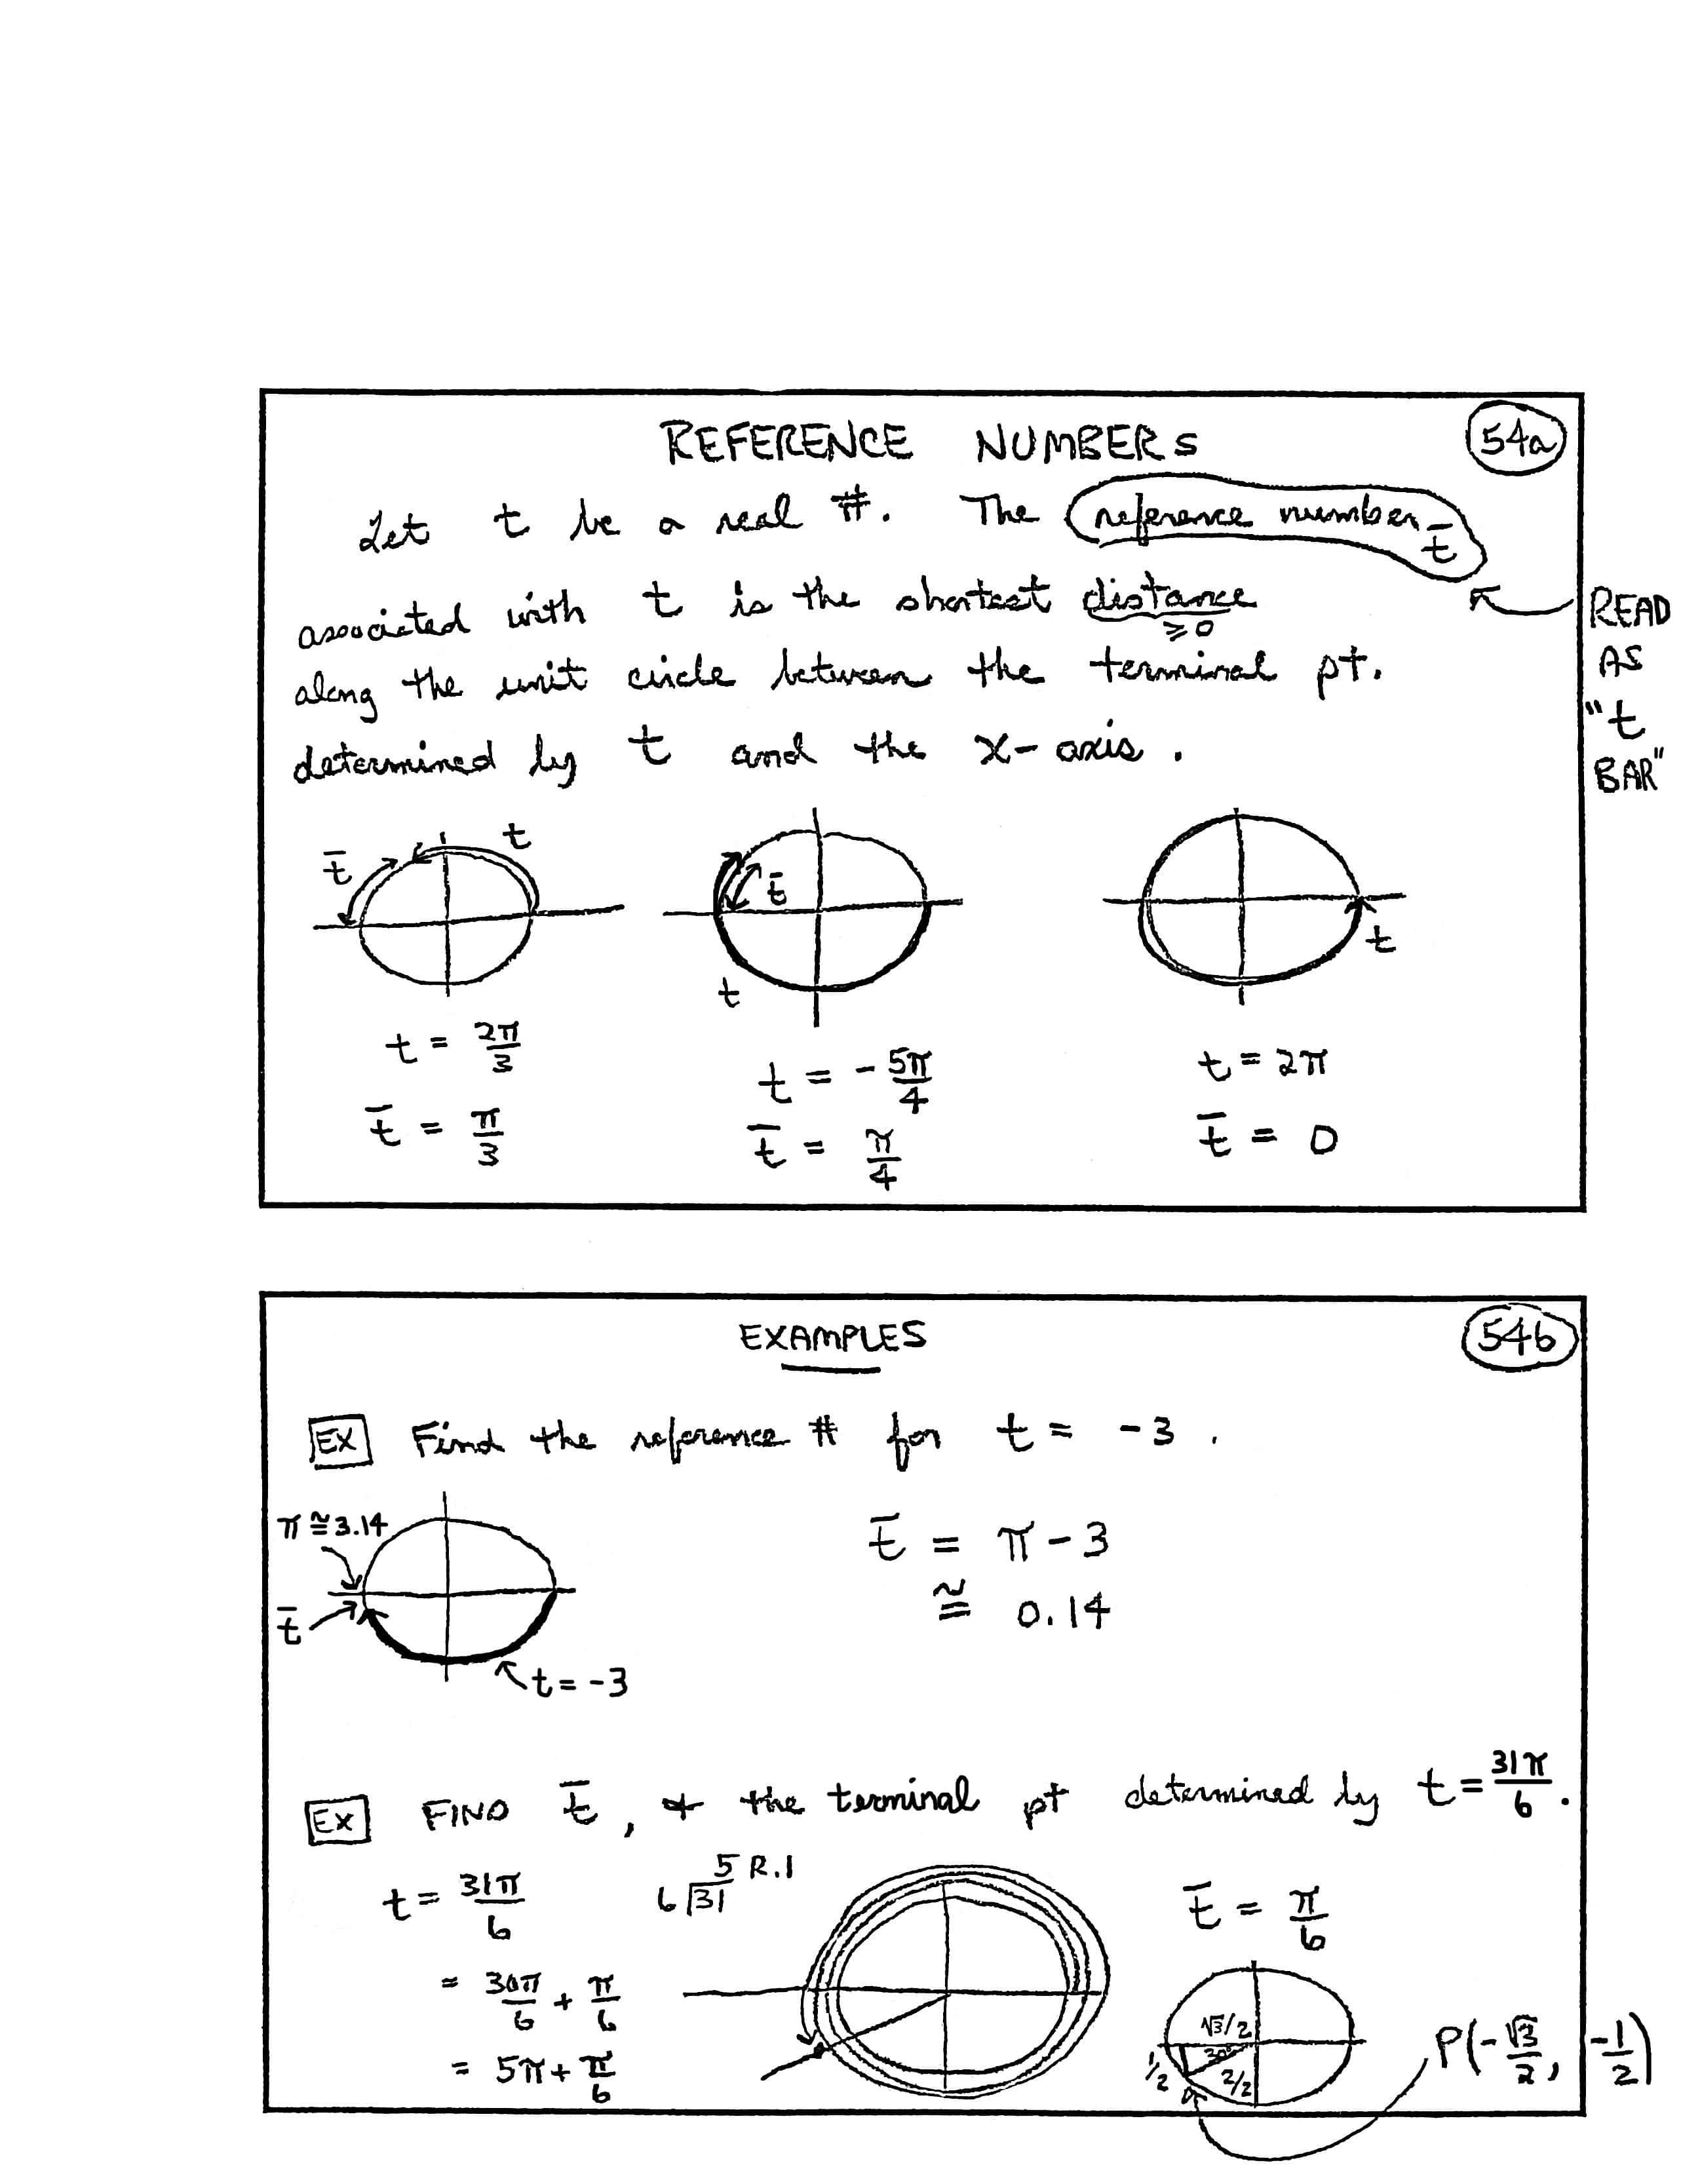 REFERENCE NUMBERS
54a
Let t be a real #. The reference number t̄
associated with t is the shortest distance
≥0
along the unit circle between the terminal pt.
determined by t and the x-axis.
READ
AS
"t
BAR"
t̄ t
t̄
t
t
t = 2π/3
t̄ = π/3
t = -5π/4
t̄ = π/4
t = 2π
t̄ = 0
EXAMPLES
54b
EX Find the reference # for t = -3.
π ≅ 3.14
t̄
t = -3
t̄ = π - 3
≅ 0.14
EX FIND t̄, & the terminal pt determined by t = 31π/6.
t = 31π/6
= 30π/6 + π/6
= 5π + π/6
5 R.1
6 √31
t̄ = π/6
√3/2
30°
1/2
2/2
P(-√3/2, -1/2)